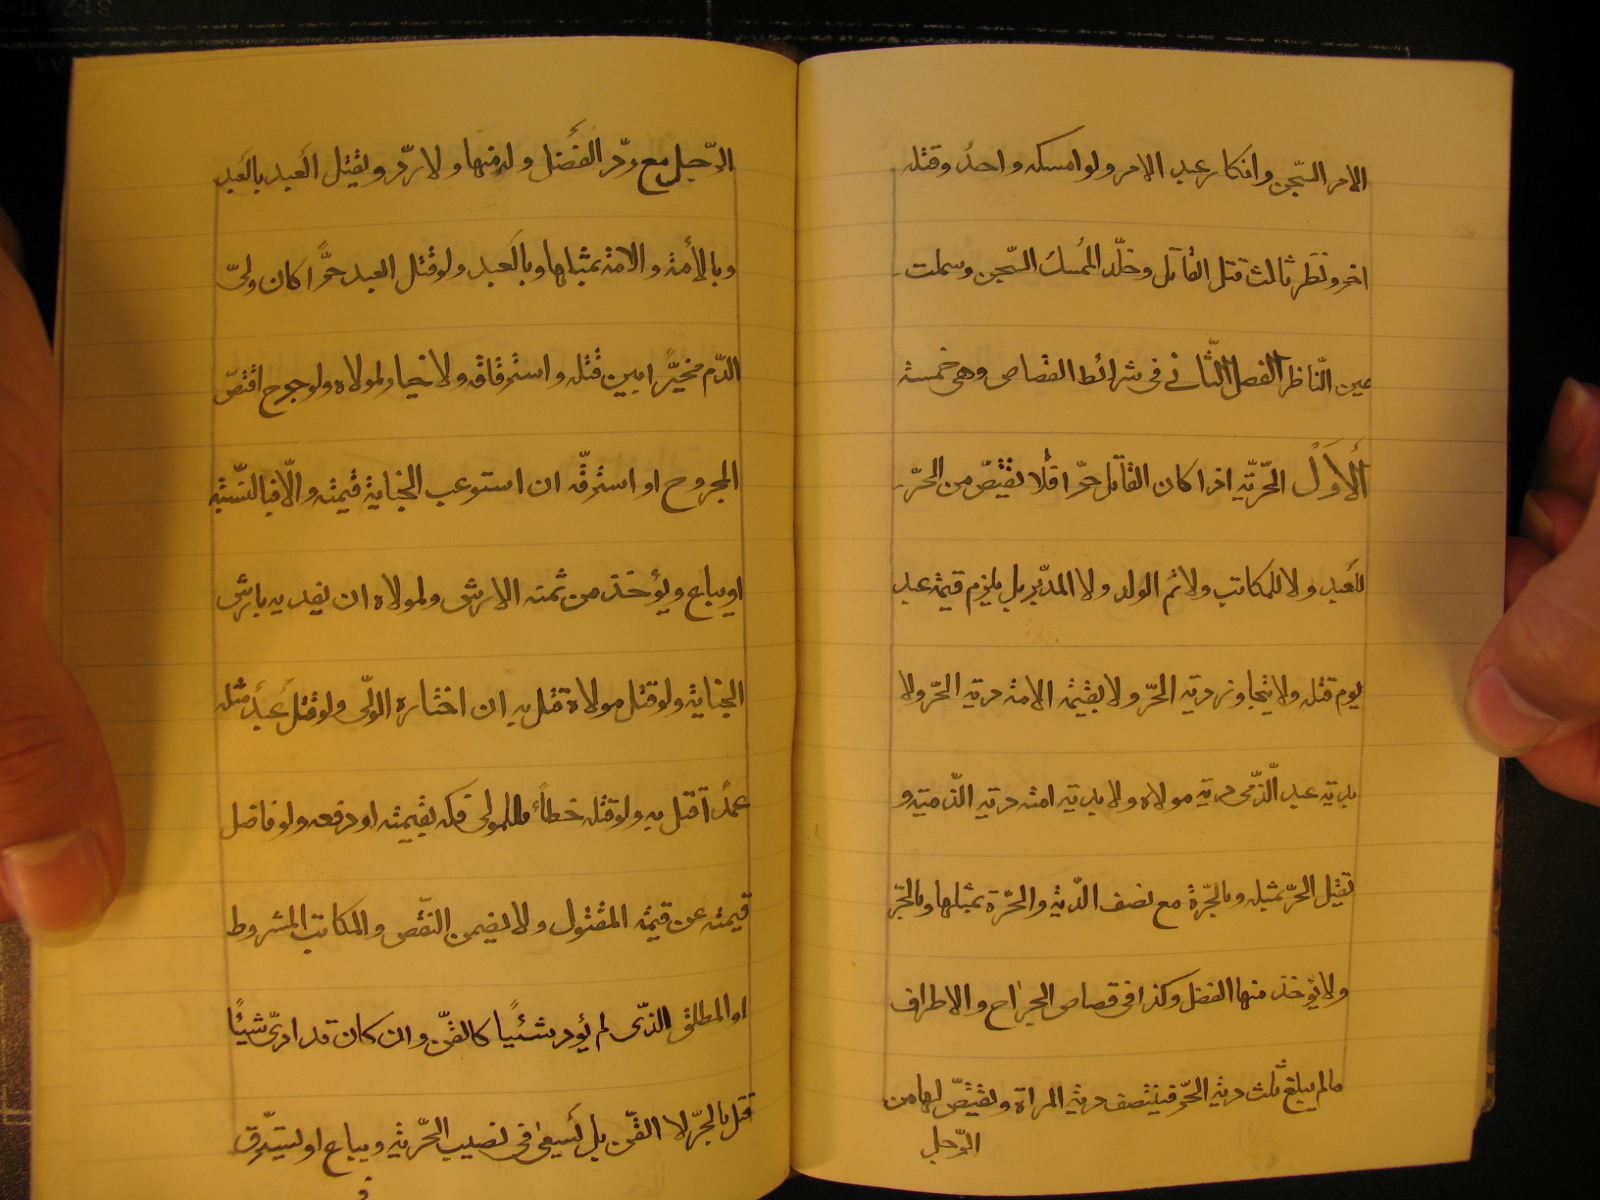 الامر السّجن وان كان عبد الامر ولو امسكه واحدٌ وقتله
اخر ونَظَر ثالث قتل القاتل وخلّد الممسك السّجن وسملت
عين النّاظر الفصل الثّاني في شرائط القصاص وهي خمسة
اَلْاوَّل الحرّيّة اذا كان القاتل حرّا فلا يقتصّ من الحرّ
للعبد ولا للمكاتب ولا لامّ الولد ولا المدبّر بل يلزم قيمة عبد
يوم قتله ولا يتجاوز دية الحرّ ولا بقيمة الامة دية الحرّ ولا
بدية عبد الذّمّى دية مولاه ولا بدية امته دية الذّمّيّة و
يقتل الحرّ بمثله وبالحرّة مع نصف الدّية والحرّة بمثلها وبالحرّ
ولا يؤخذ منها الفضل وكذا في قصاص الجراح والاطراف
مالم يبلغ ثلث دية الحرّ فينتصف دية المراة ويقتصّ لها من
الرّجل
الرّجل مع ردّ الفَضل وله منها ولا ردّ ويقتل العبد بالعَبد
وبالأمة والامة بمثلها وبالعبد ولو قتل العبد حرًّا كان وليّ
الدّم مخيّرًا بين قتله واسترقاقه ولا خيار لمولاه ولو جرح اقتصّ
المجروح او استرقّه ان استوعب الجناية قيمته والّا فبالنّسبة
او يباع ويؤخذ من ثمنه الارش ولمولاه ان يفديه بارش
الجناية ولو قتل مولاه قتل به ان اختاره الولّى ولو قتل عَبدٌ مثله
عمدًا قتل به ولو قتله خطاً فللمولى فكه بقيمته او دفعه ولو فاضل
قيمته عن قيمة المقتول ولا يضمن النّقص والمكاتب المشروط
او المطلق الذّى لم يؤد شئيًا كالقنّ وان كان قد ادّى شيئًا
قتل بالحرّ لا القنّ بل يَسعى في نصيب الحرّية ويباع او يسترّق